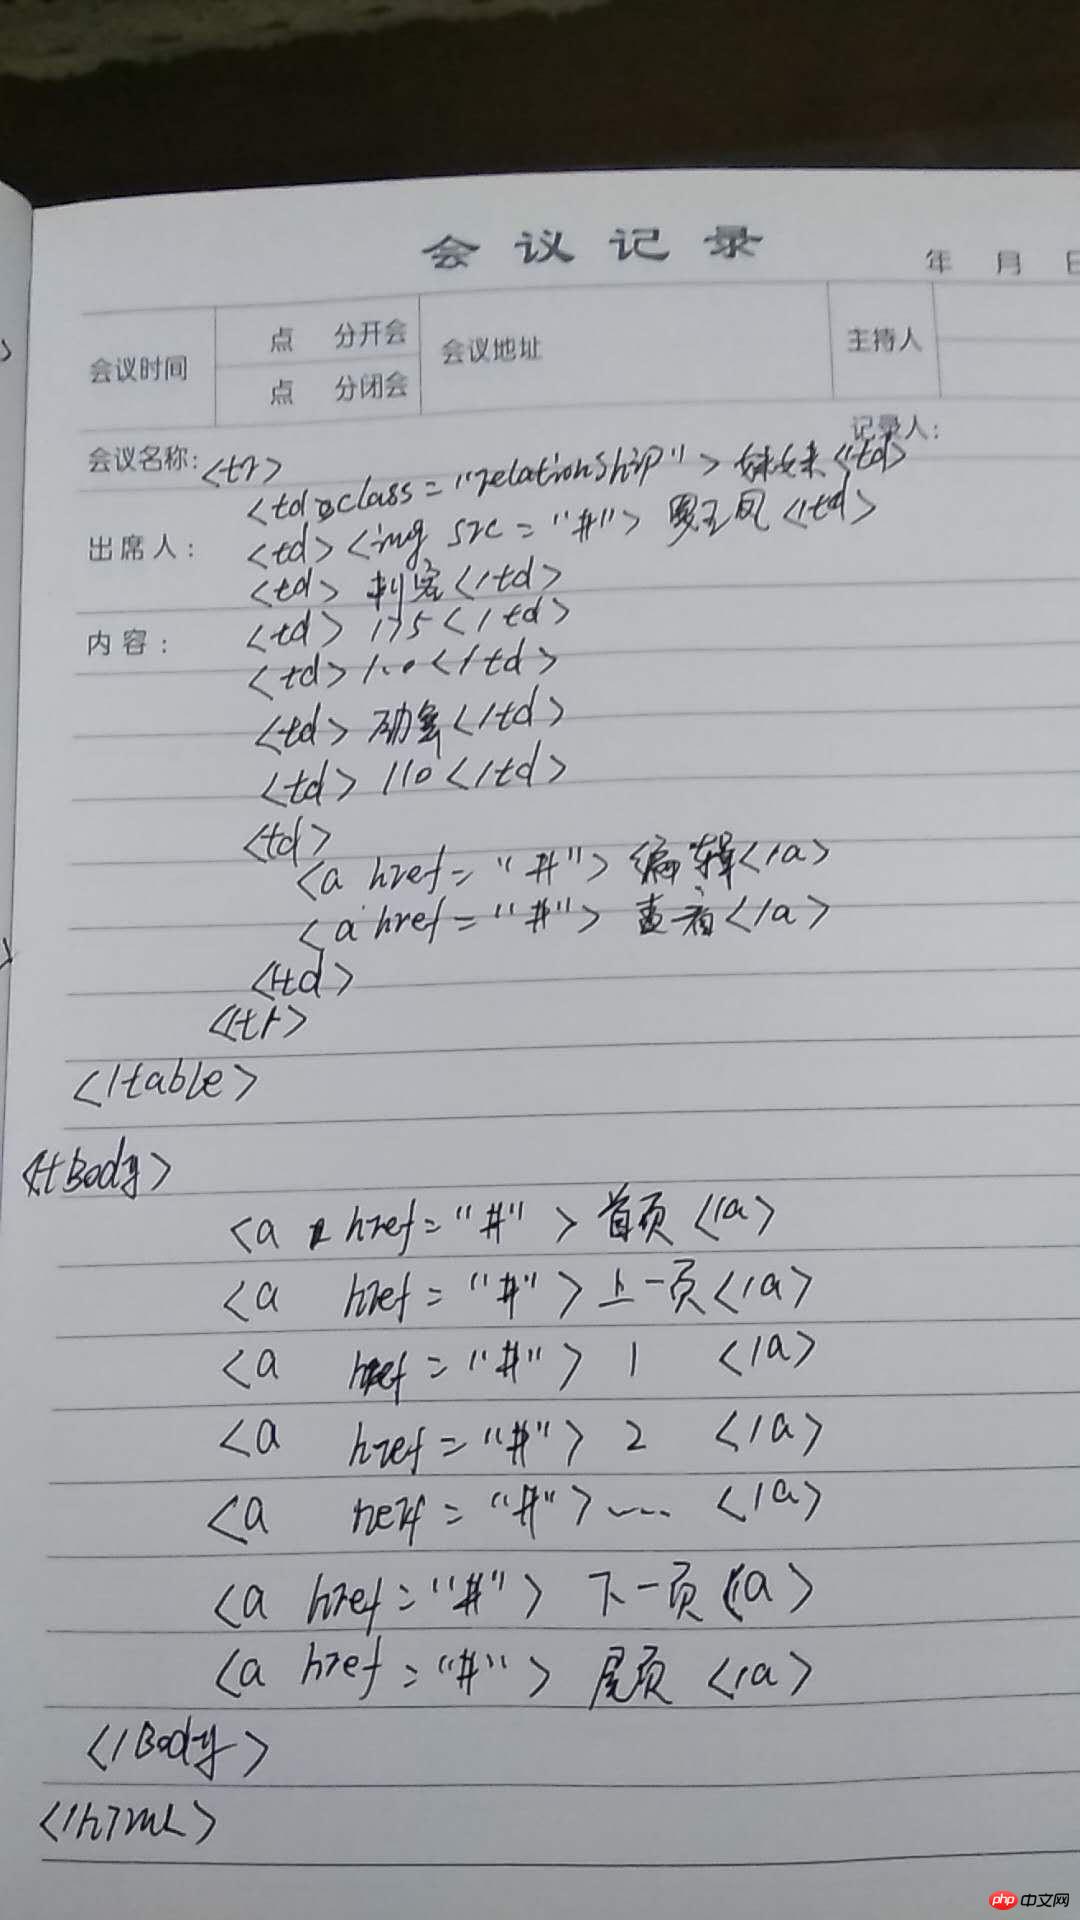 会议记录
年 月 日
会议时间 点 分开会 会议地址 主持人
点 分闭会
记录人:
会议名称: <tr>
<td class="relationship"> 妹妹</td>
出席人: <td><img src="#"> 玉凤</td>
<td> 刺客</td>
内容: <td> 175</td>
<td></td>
<td></td>
<td> 110</td>
<td>
<a href="#"> 编辑</a>
<a href="#"> 查看</a>
</td>
</tr>
</table>
</tBody>
<a href="#"> 首页 </a>
<a href="#"> 上一页</a>
<a href="#"> 1 </a>
<a href="#"> 2 </a>
<a href="#"> .... </a>
<a href="#"> 下一页 </a>
<a href="#"> 尾页 </a>
</Body>
</html>
php中文网